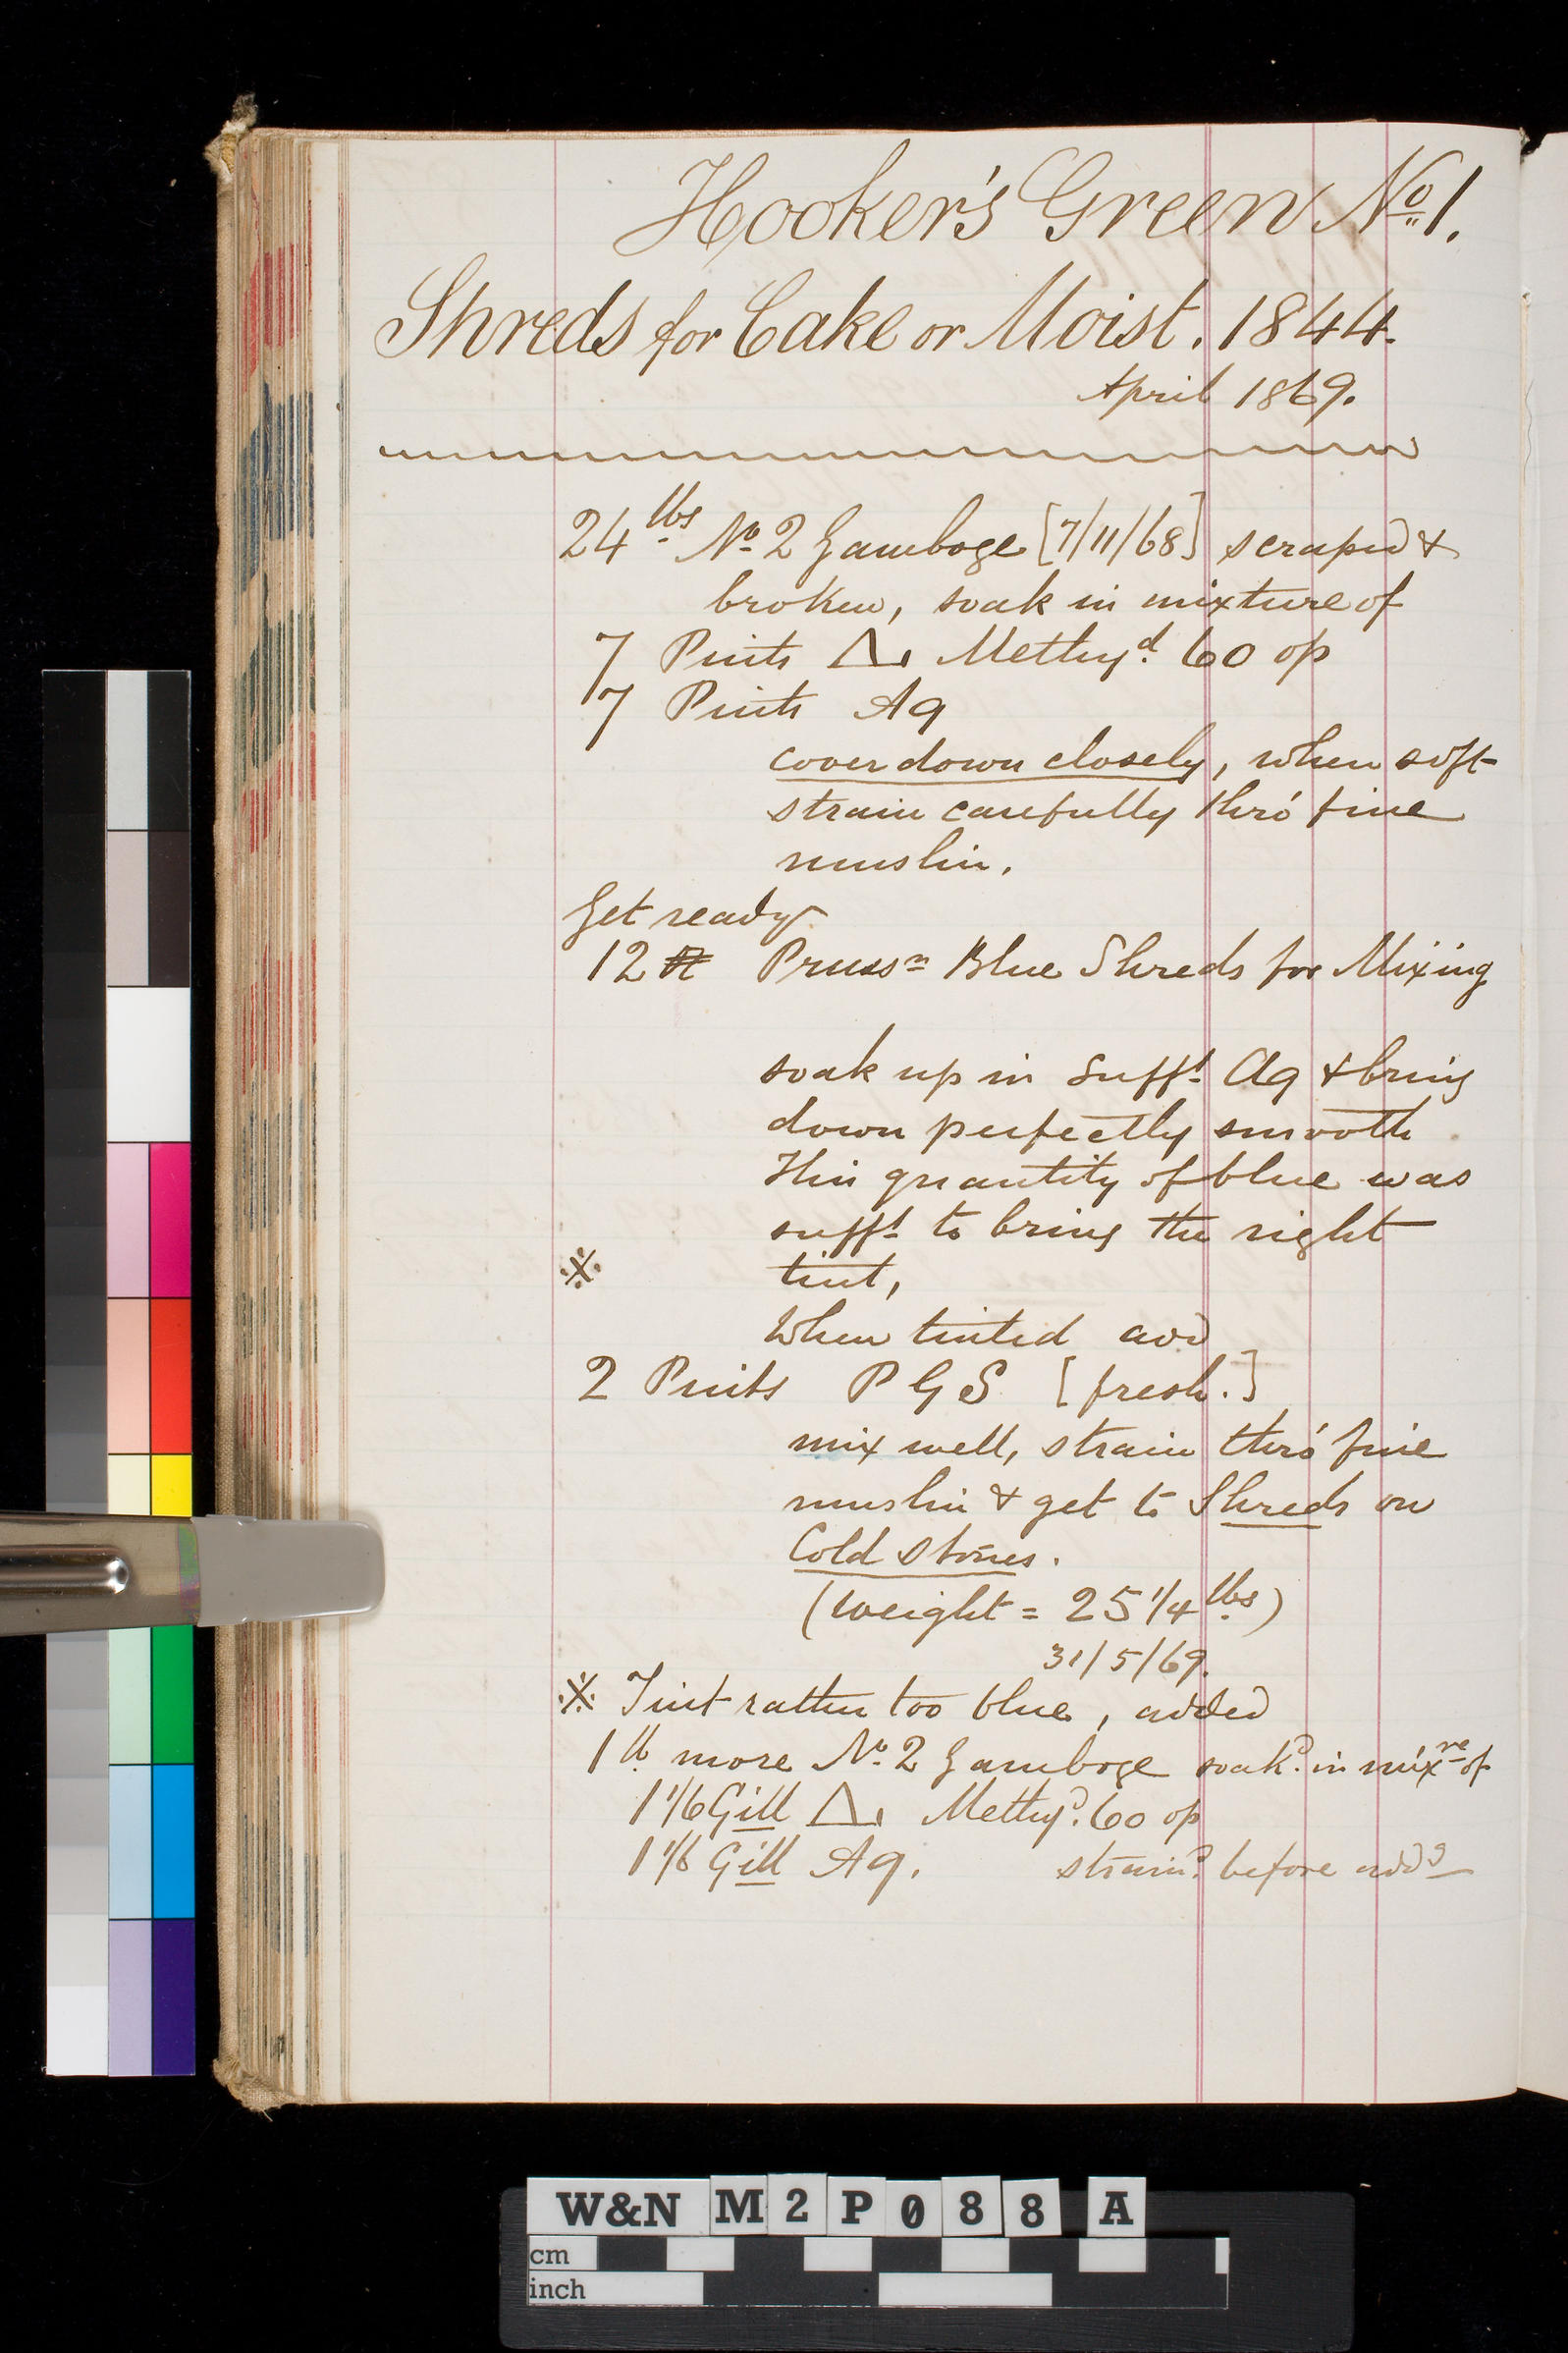 Hooker's Green No 1.
Shreds for Cake or Moist. 1844.
April 1869.
24 lbs No 2 Gamboge [7/11/68] scraped &
broken, soak in mixture of
7 Pints △. Methyd. 60 op
7 Pints Aq
cover down closely, when soft
strain carefully thro' fine
muslin.
Get ready
12 ℔ Prussn Blue Shreds for Mixing
soak up in sufft Aq & bring
down perfectly smooth
This quantity of blue was
sufft to bring the right
※ tint,
When tinted add
2 Pints P G S [fresh.]
mix well, strain thro' fine
muslin & get to Shreds on
Cold stones.
(weight = 25 1/4 lbs)
31/5/69.
※ Tint rather too blue, added
1 lb more No 2 Gamboge soakd. in mixre of
1 1/6 Gill △. Methyd. 60 op
1 1/6 Gill Aq. straind. before addg
W&N M2P088 A
cm
inch